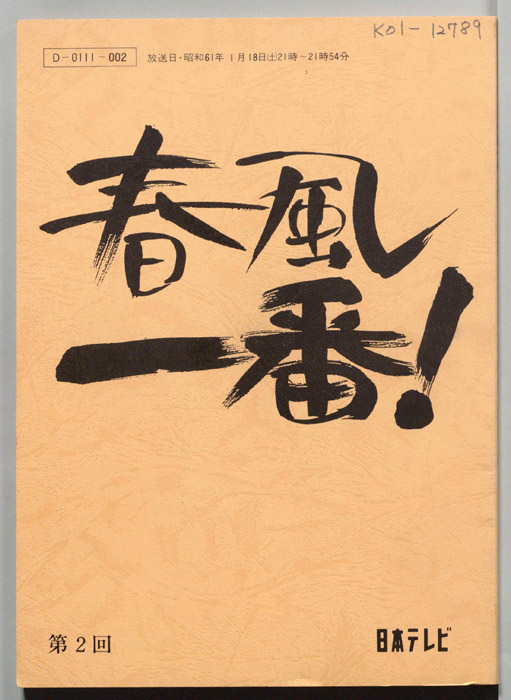 K01-12789
D-0111-002 放送日・昭和61年 1月18日(土)21時～21時54分
春風
一番!
第2回
日本テレビ